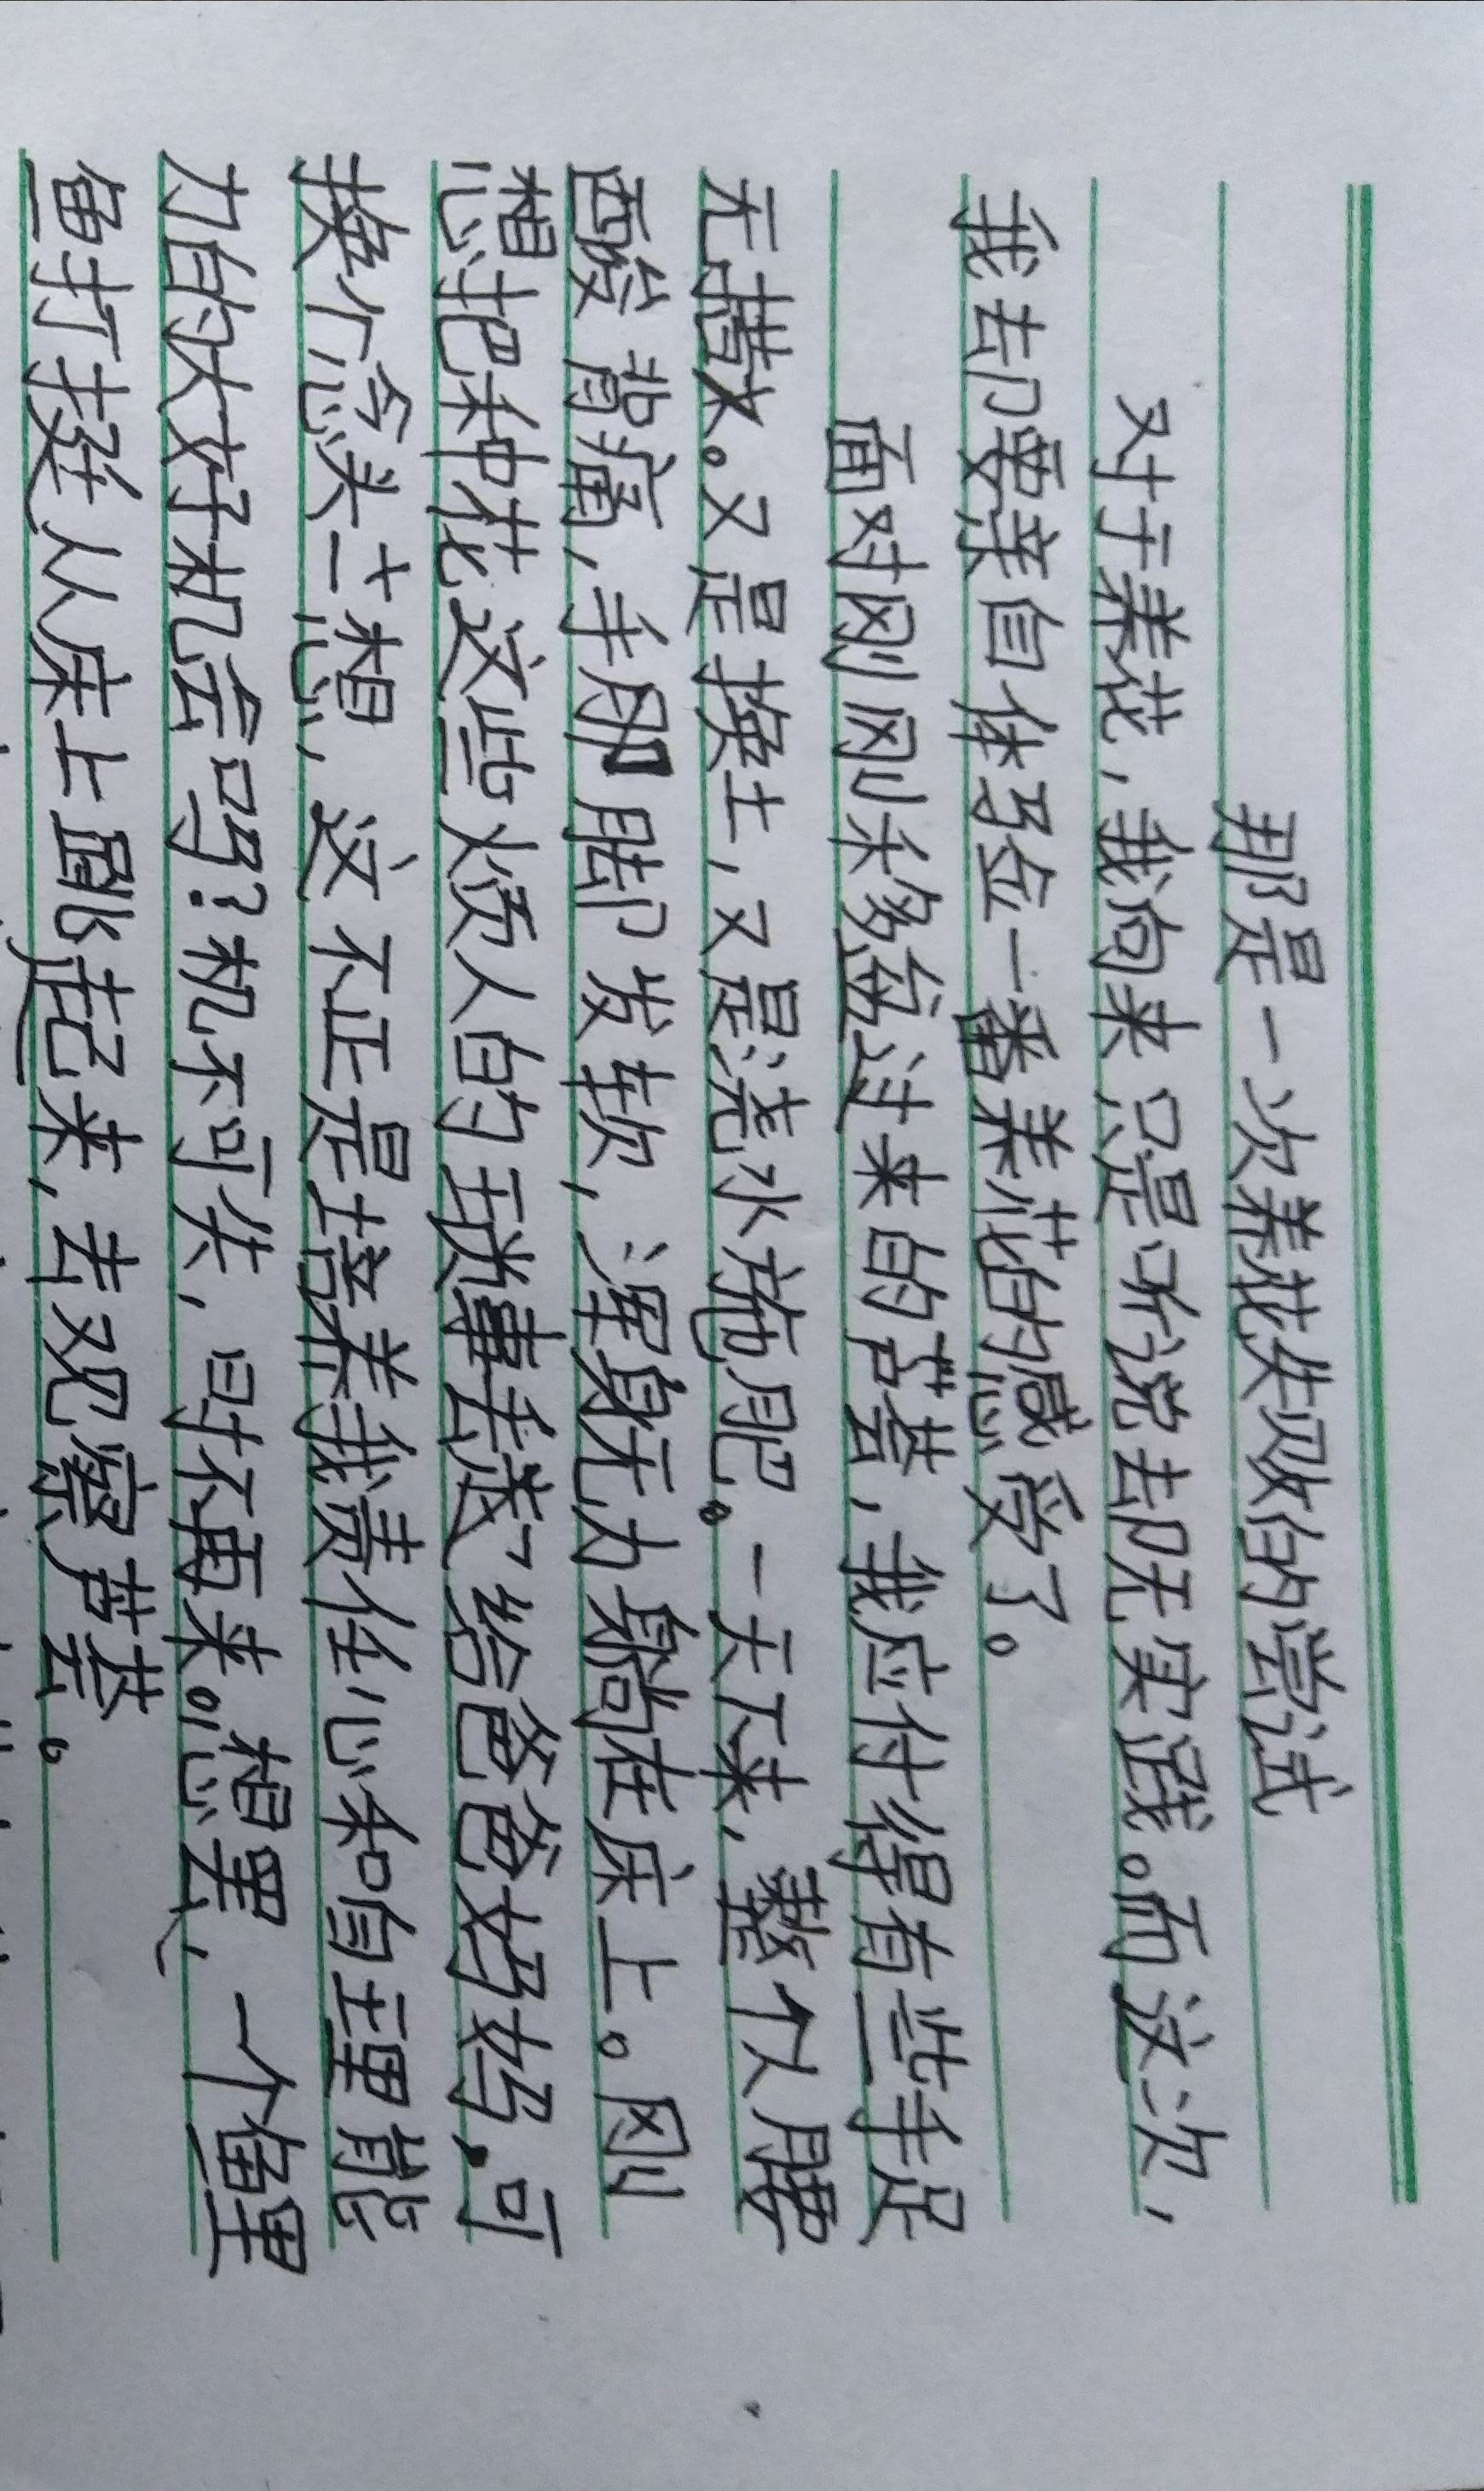 那是一次养花失败的尝试
对于养花，我向来只是听说却无实践。而这次，
我却要亲自体马金一番养花的感受了。
面对刚刚米多盆过来的芦荟，我应付得有些手足
无措。又是换土，又是浇水施肥。一天下来，整个人腰
酸背痛，手脚脚发软，浑身无力躺在床上。刚
想把种花这些烦人的琐事丢送给爸爸妈妈，可
换个念头一想，这不正是培养我责任心和自理能
力的大好机会吗？机不可失，时不再来。想罢，一个鱼里
鱼打挺从床上爬起来，去观察芦荟。